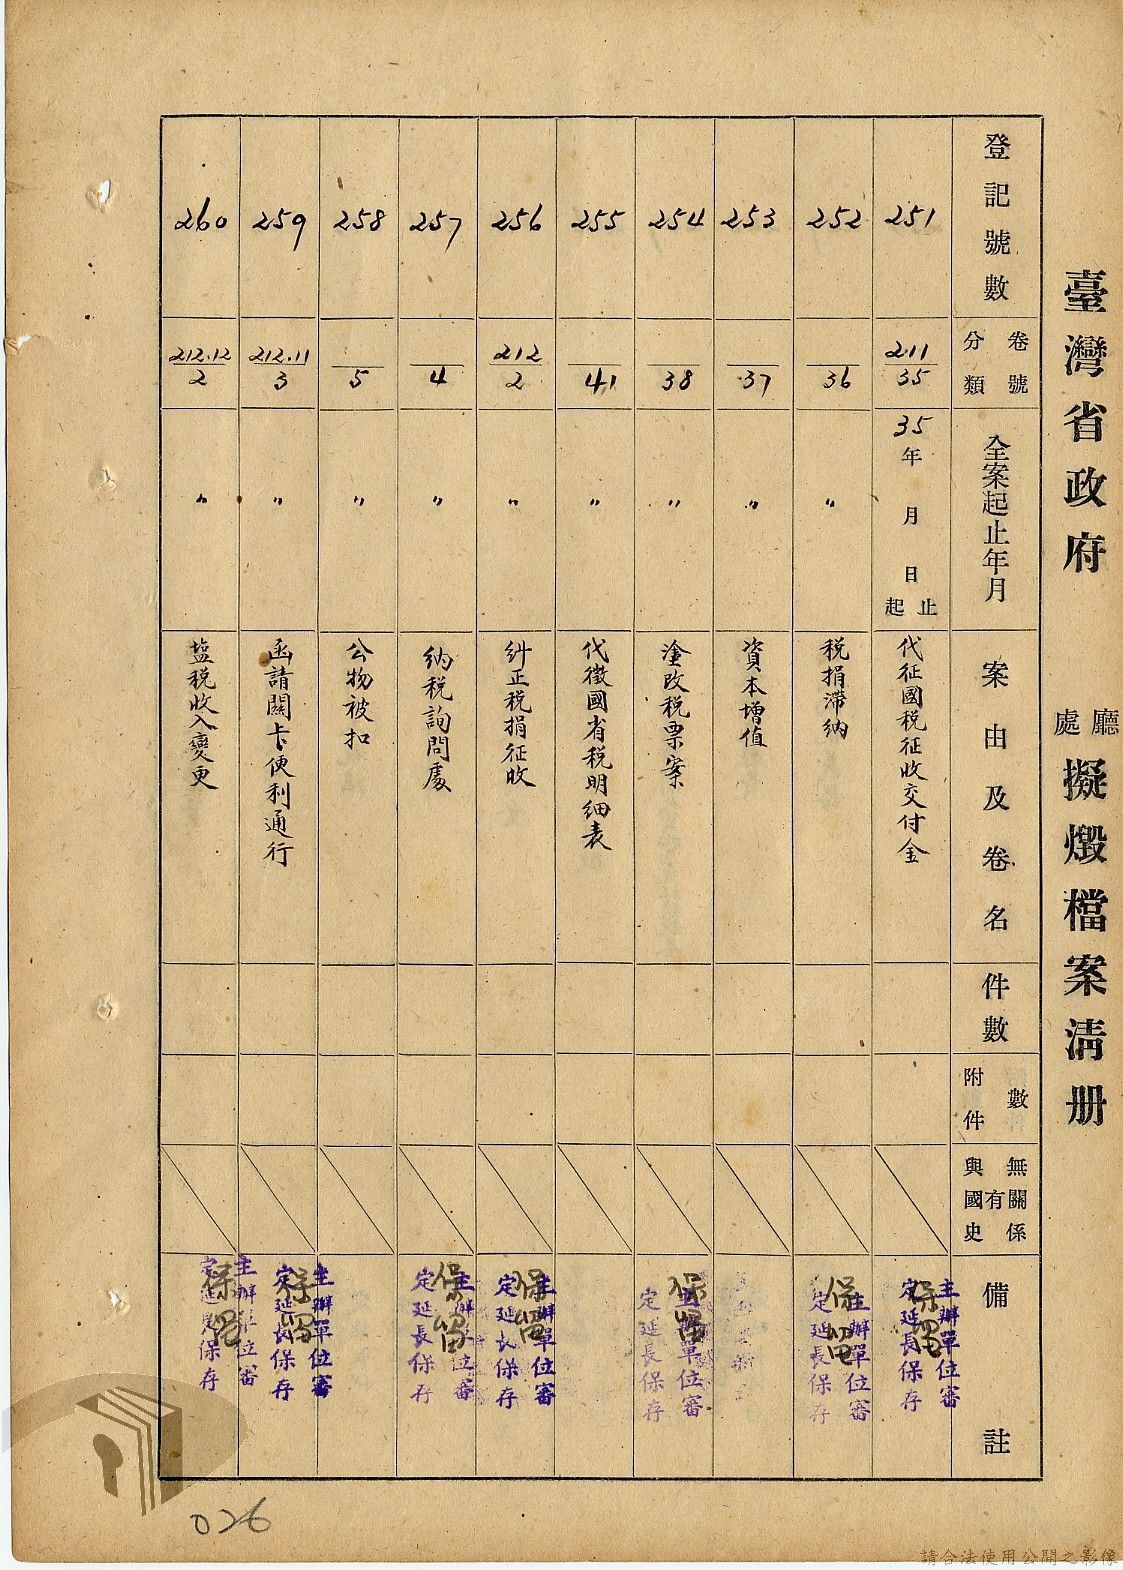 臺灣省政府
廳
處
擬燬檔案清册
登記號數
卷號
分類
全案起止年月
案由及卷名
件數
附件
數
與國史
有
無
關係
備註
251
211
35
35年 月 日
止
起
代征國税征收交付金
主辦單位審
定延長保存
保留
252
36
〃
税捐滯納
主辦單位審
定延長保存
保留
253
37
〃
資本增值
254
38
〃
塗改税票案
主辦單位審
定延長保存
保留
255
41
〃
代徵國省税明細表
256
212
2
〃
糾正税捐征收
主辦單位審
定延長保存
保留
257
4
〃
納税詢問處
主辦單位審
定延長保存
保留
258
5
〃
公物被扣
259
212.11
3
〃
函請關卡便利通行
主辦單位審
定延長保存
保留
260
212.12
2
〃
塩税收入變更
主辦單位審
定延長保存
保留
026
請合法使用公開之影像